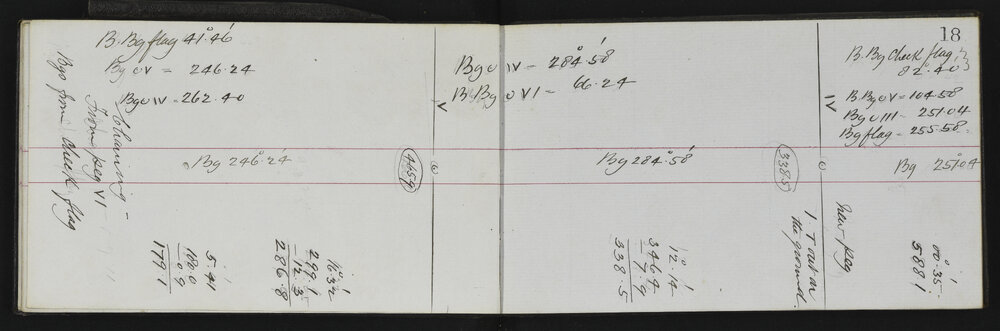 18
B. Bg flag 41°.46'
Bg o V = 246.24
Bg o IV = 262.40
Bgs from check flag
Chaining -
From peg VI
Bg 246°.24'
Bg o IV = 284°.58'
B. Bg o VI = 66.24
V
Bg 284°.58'
B. Bg check flag,
82°.40'
B. Bg o V = 104.58
Bg o III = 251.04
Bg flag = 255.58
IV
Bg 251°.04
4659
3385
5°.41'
180.0
- 0.9
179.1
299.1
- 12.3
286.8
12.14
346.4
- 7.9
338.5
1. T out on
the ground.
New peg
00°.35'
588.1